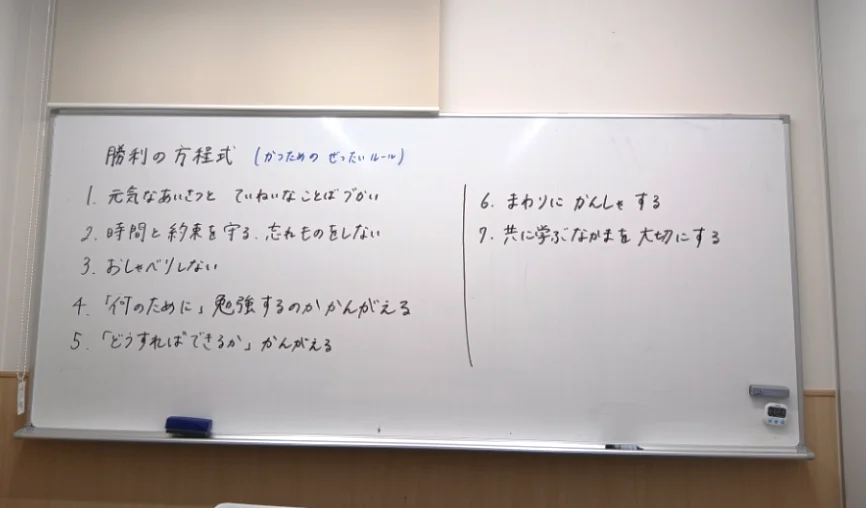 勝利の方程式 (かつための ぜったいルール)
1. 元気なあいさつと ていねいなことばづかい
2. 時間と約束を守る、忘れものをしない
3. おしゃべりしない
4. 「何のために」勉強するのかかんがえる
5. 「どうすればできるか」かんがえる
6. まわりに かんしゃ する
7. 共に学ぶなかまを 大切にする